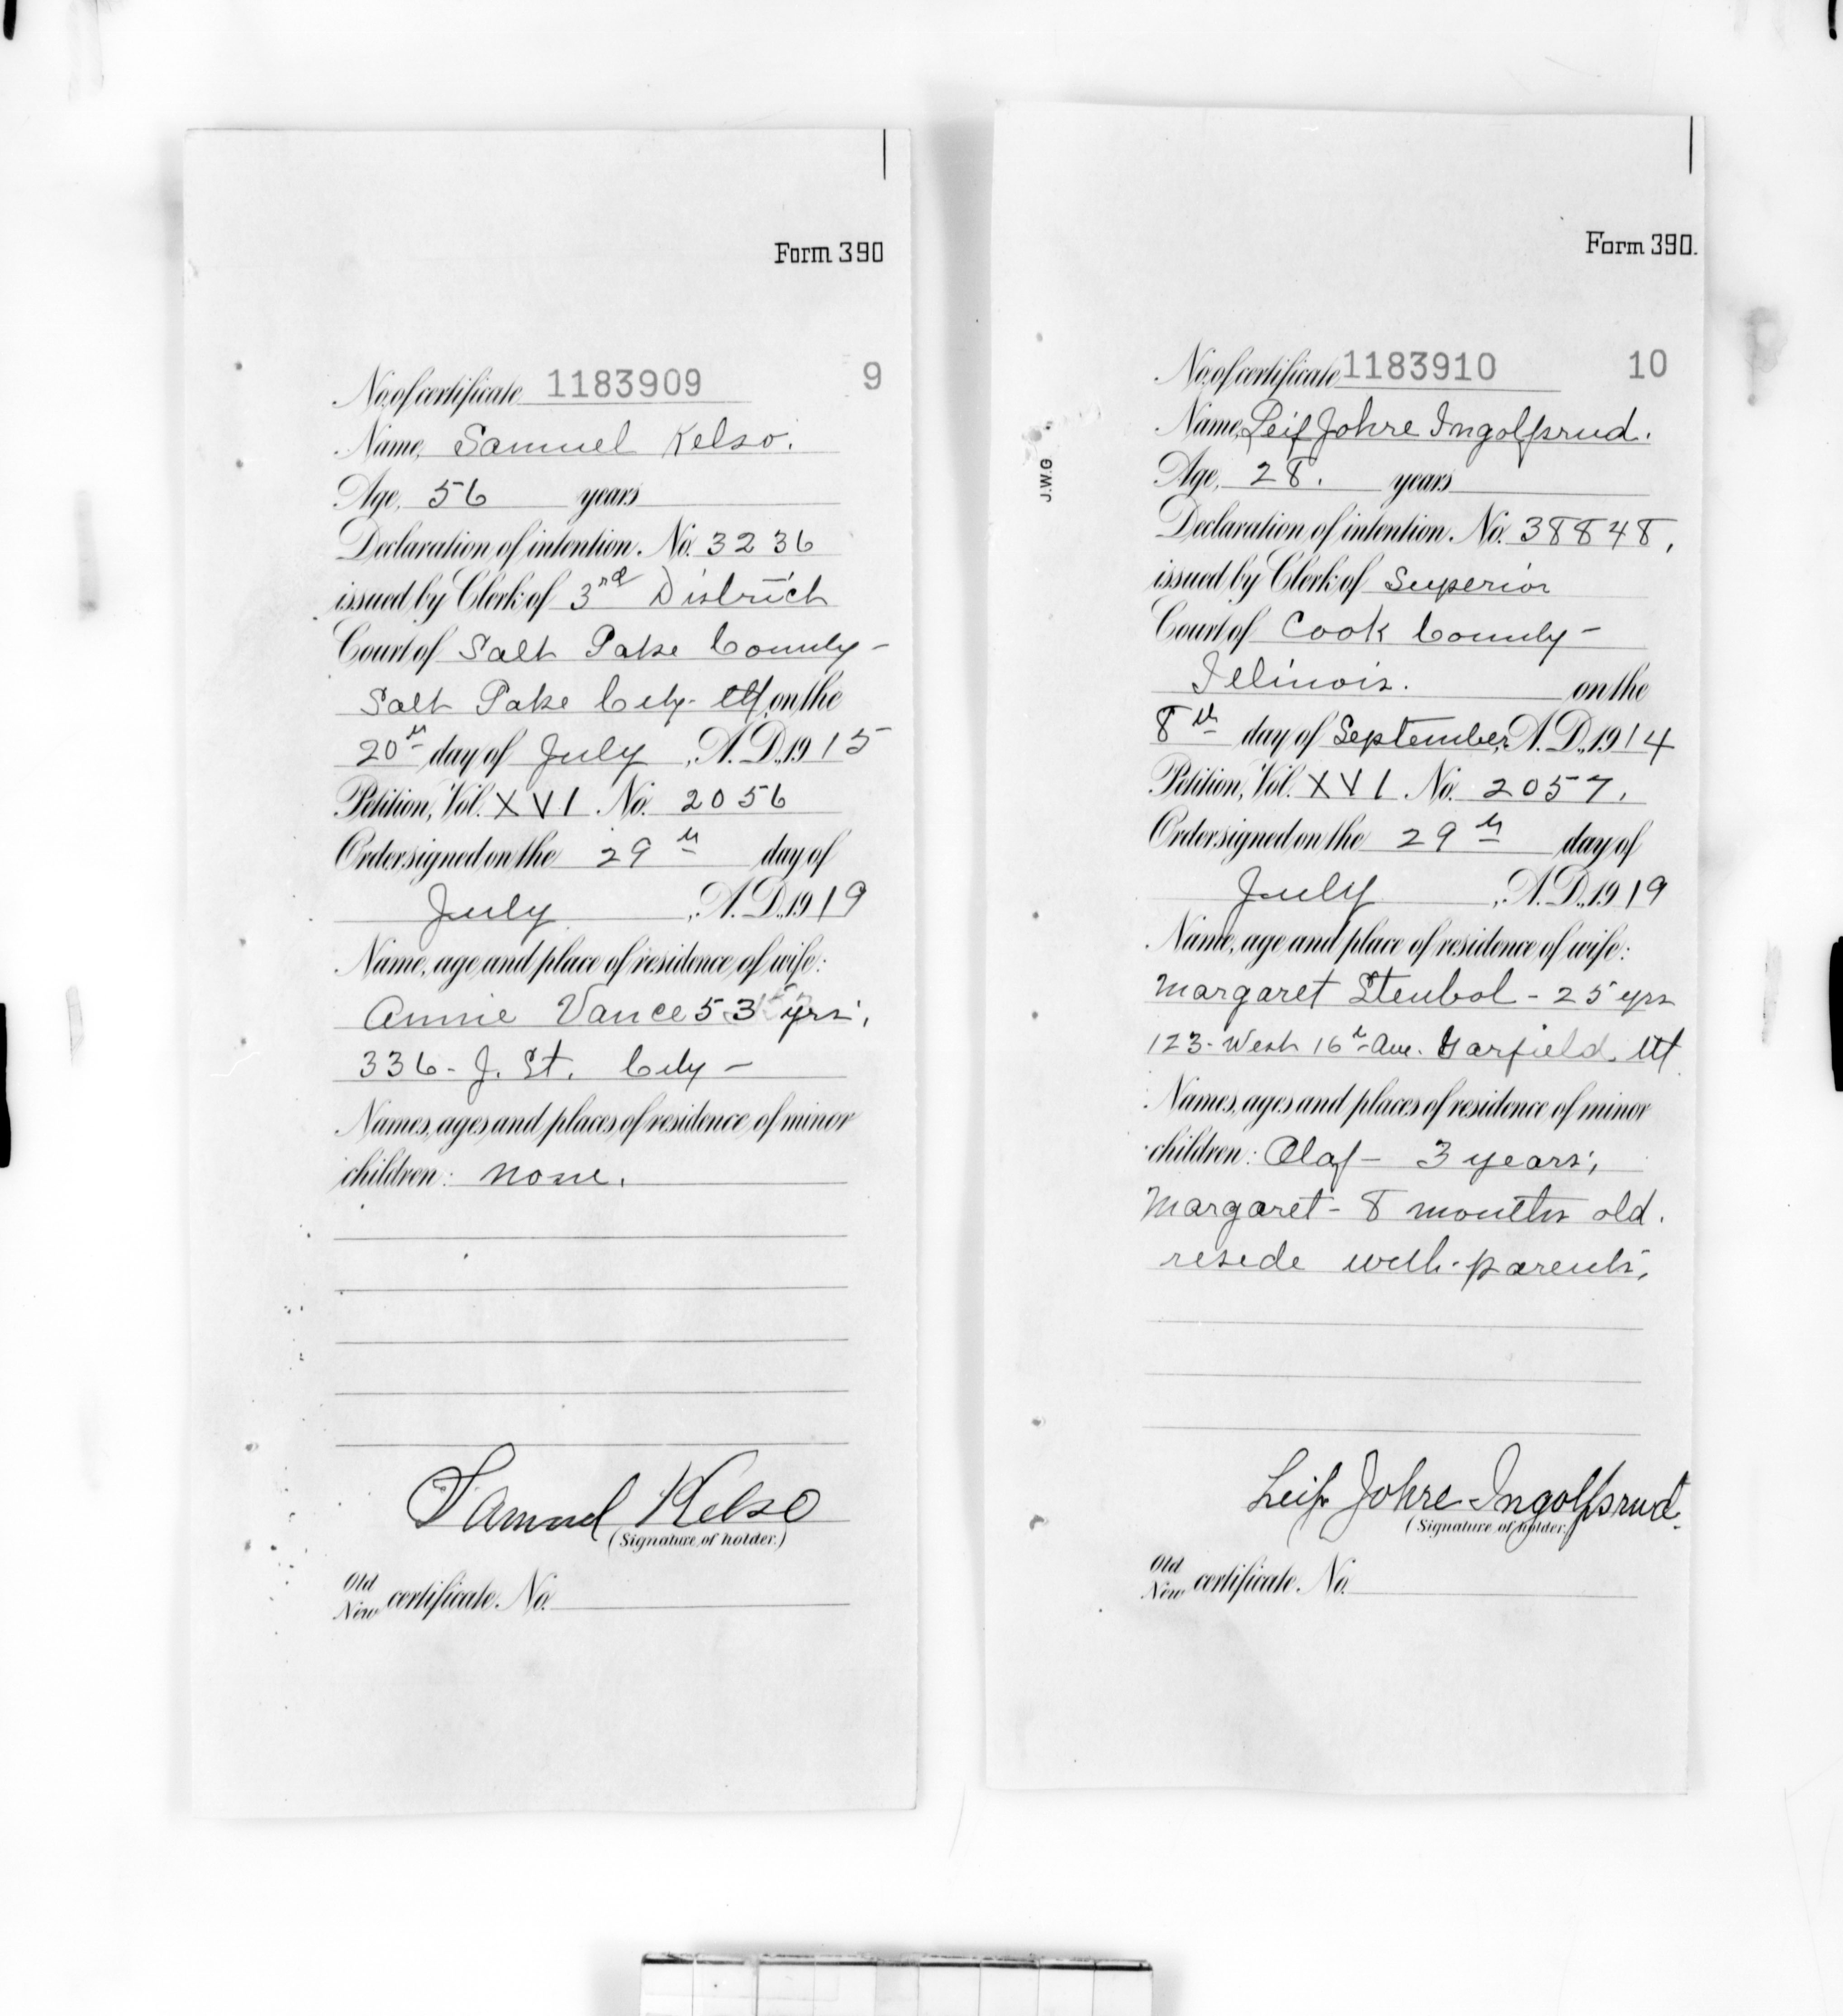 Form 390
No. of certificate 1183909 9
Name, Samuel Kelso.
Age, 56 years
Declaration of intention. No. 3236
issued by Clerk of 3rd District
Court of Salt Lake County-
Salt Lake City. Ut. on the
20th day of July, A.D., 1915
Petition, Vol. XVI No. 2056
Order signed on the 29th day of
July, A.D., 1919
Name, age and place of residence of wife:
Annie Vance 53 yrs,
336-J. St. City-
Names, ages and places of residence of minor
children: none.
Samuel Kelso
(Signature of holder.)
Old
New certificate No.
Form 390.
No. of certificate 1183910 10
Name, Leif Johre Ingolfsrud.
J.W.G
Age, 28. years
Declaration of intention. No. 38848,
issued by Clerk of Superior
Court of Cook County-
Illinois. on the
8th day of September, A.D., 1914
Petition, Vol. XVI No. 2057.
Order signed on the 29th day of
July, A.D., 1919
Name, age and place of residence of wife:
Margaret Stenbol - 25 yrs
123-West 16th Ave. Garfield, Ut
Names, ages and places of residence of minor
children: Olaf - 3 years,
Margaret - 8 months old.
reside with parents,
Leif Johre Ingolfsrud.
(Signature of holder.)
Old
New certificate No.